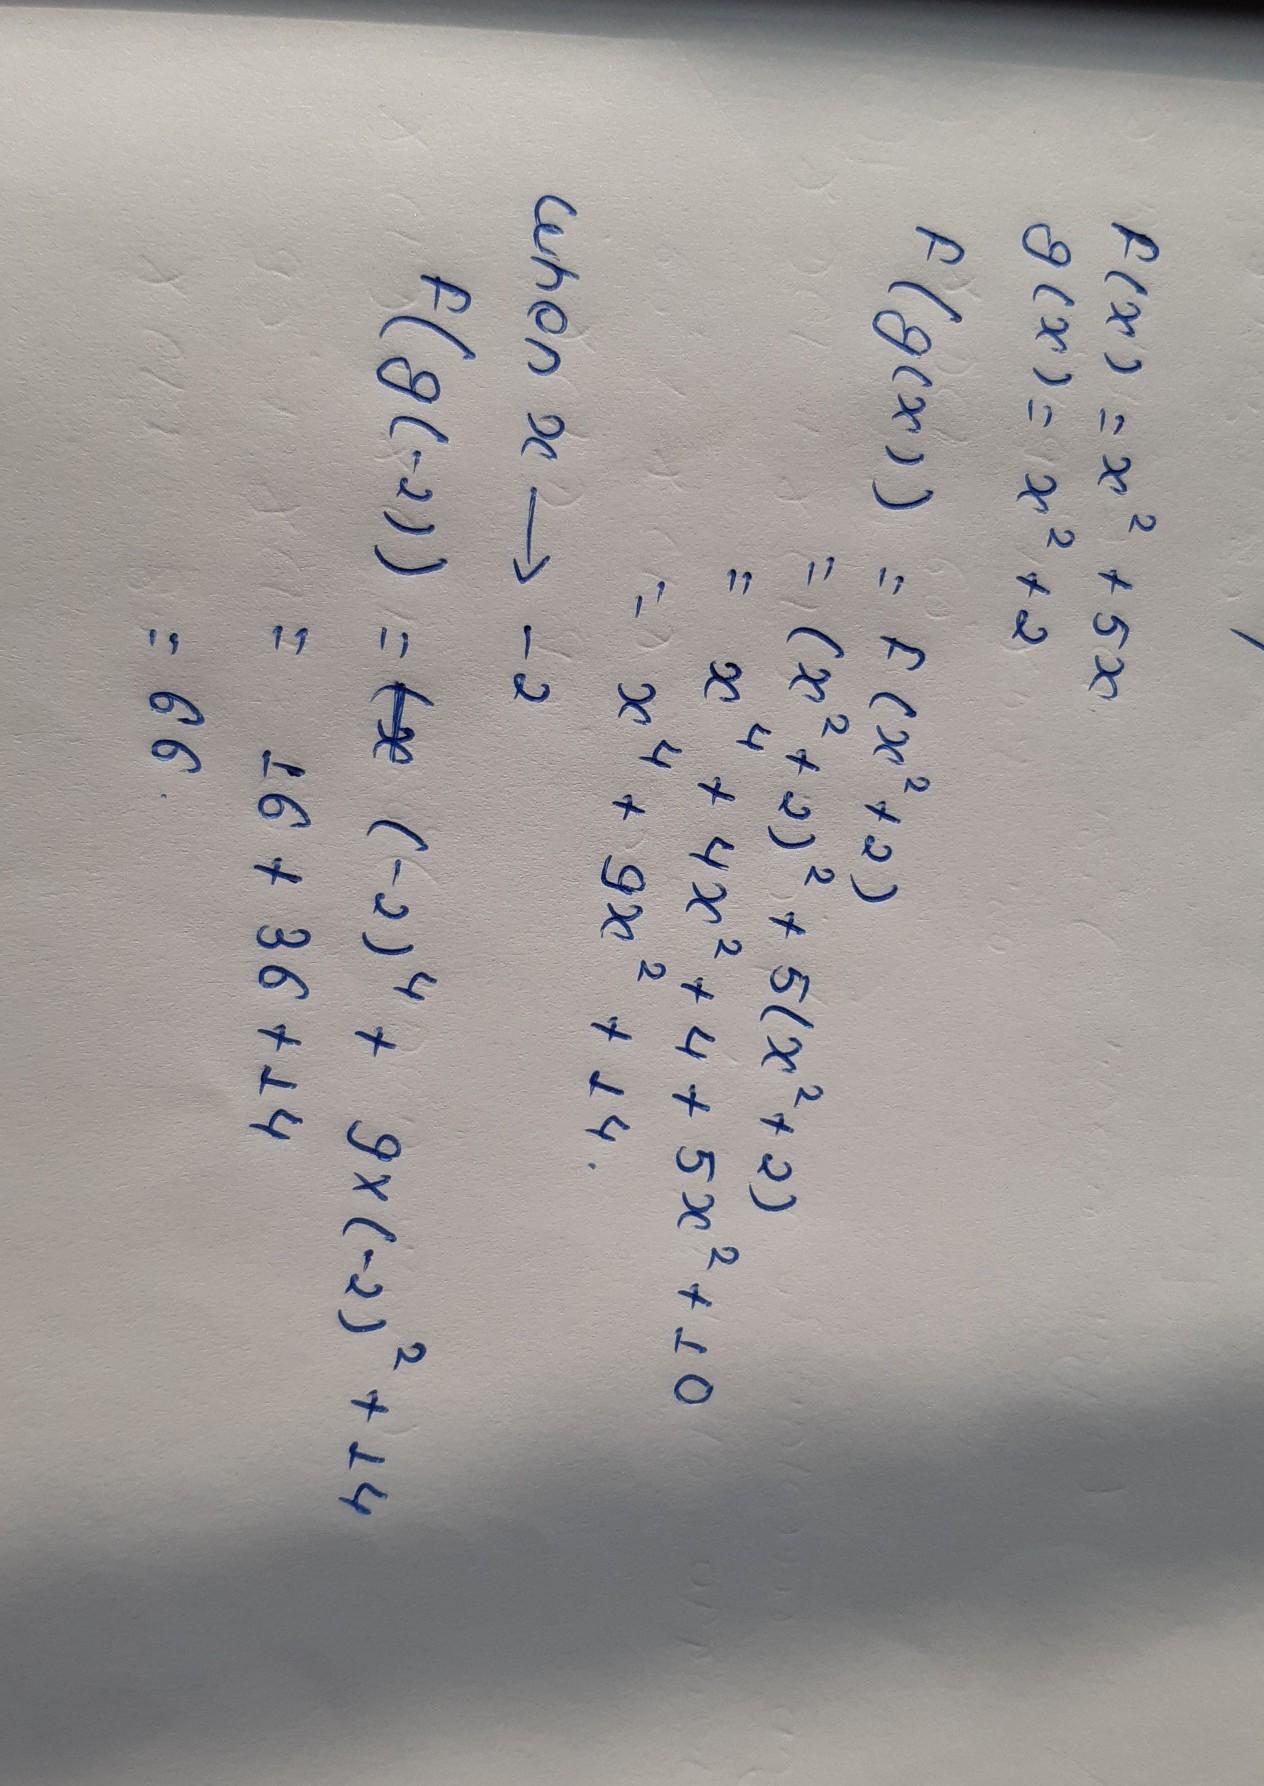 F(x) = x² + 5x
g(x) = x² + 2
F(g(x)) = F(x² + 2)
= (x² + 2)² + 5(x² + 2)
= x⁴ + 4x² + 4 + 5x² + 10
= x⁴ + 9x² + 14.
when x → -2
F(g(-2)) = (-2)⁴ + 9x(-2)² + 14
= 16 + 36 + 14
= 66.